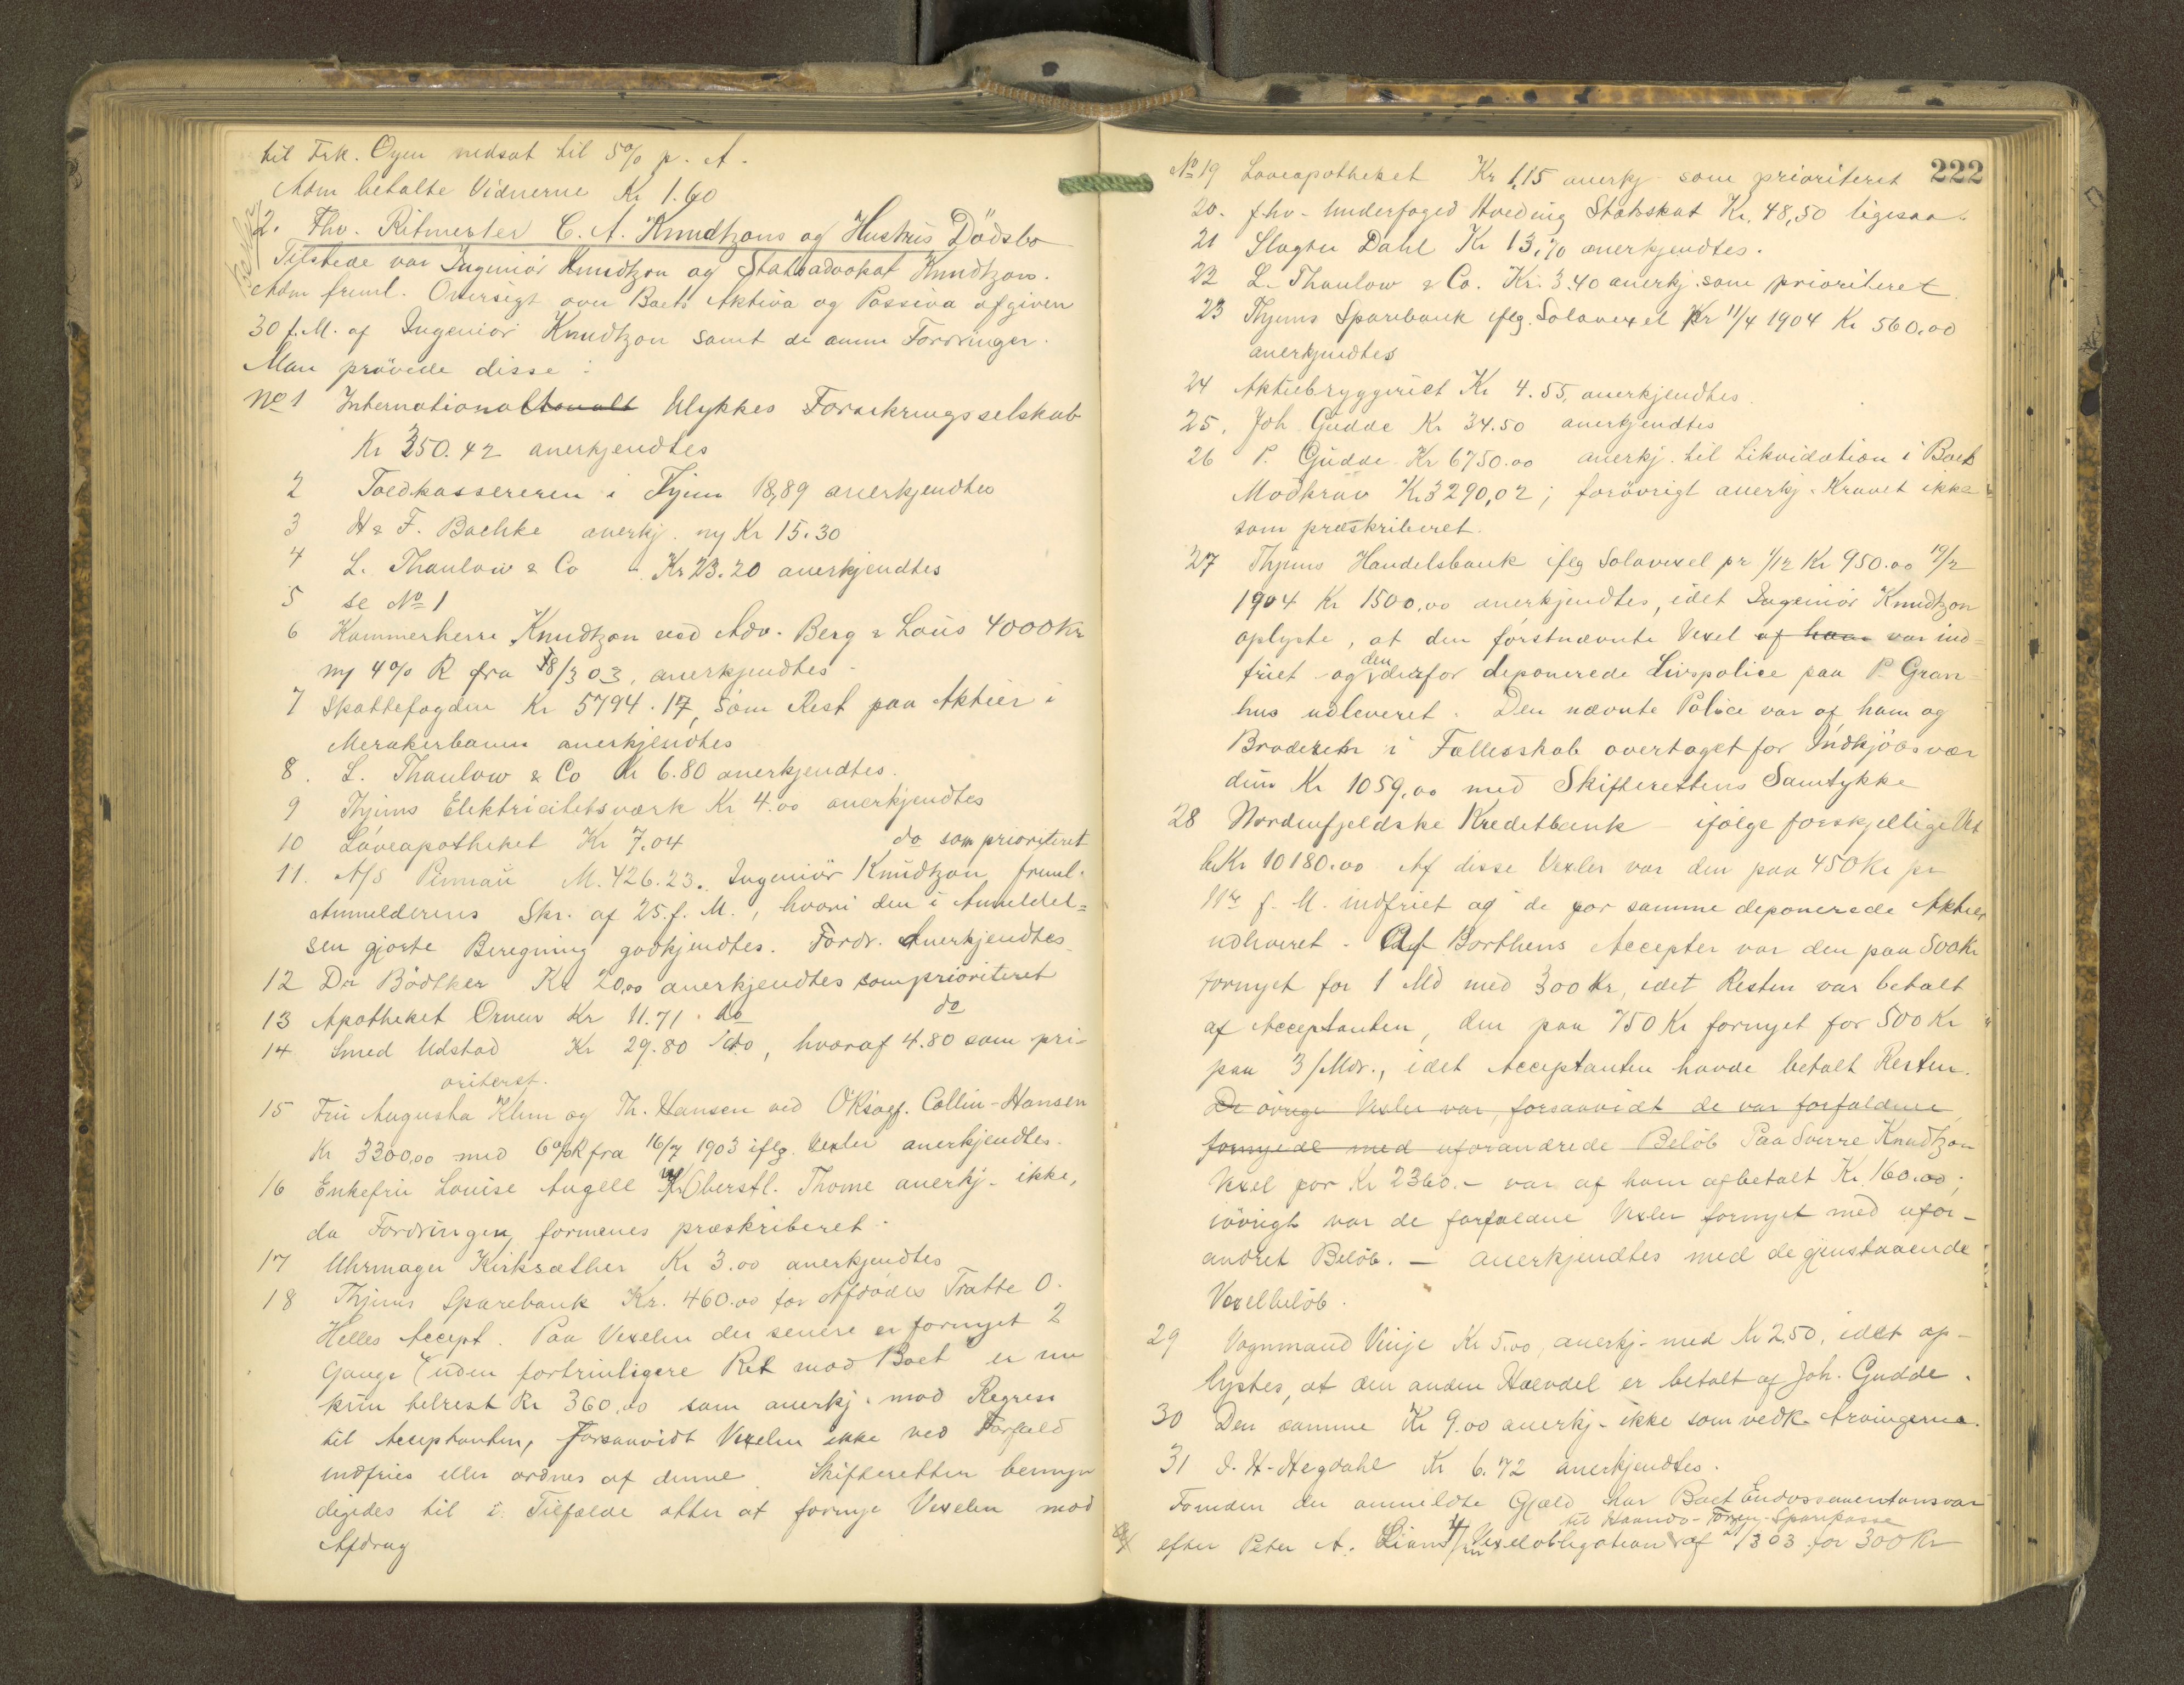 til Frk. Øyen nedsat til 5% p. A.
Adm betalte Vidnerne Kr 1.60
2. Fhv. Ritmester C. A. Knudtzons og Hustrus Dödsbo
Tilstede var Ingeniör Knudtzon og Statsadvokat Knudtzon.
Adm freml. Oversigt over Boets Aktiva og Passiva afgiven
30 f. M. af Ingeniör Knudtzon samt de anm Fordringer.
Man prövede disse:
No 1 Internationalt Ulykkes Forsikringsselskab
Kr 350.42 anerkjendtes
2 Toldkassereren i Thjem 18,89 anerkjendtes
3 H & F. Bachke anerkj. ny Kr 15.30
4 L. Thaulow & Co " Kr 23.20 anerkjendtes
5 se No 1
6 Kammerherre Knudtzon ved Adv. Berg & Lous 4000 Kr
m/ 4% R fra 18/3 03, anerkjendtes.
7 Skattefogden Kr 5794.17, som Rest paa Aktier i
Merakerbanen anerkjendtes
8. L. Thaulow & Co Kr 6.80 anerkjendtes.
9 Thjems Elektricitetsværk Kr 4.00 anerkjendtes
10 Löveapotheket Kr 7.04 do som prioriteret
11. A/S M. 426.23. Ingeniör Knudtzon freml.
Anmelderens Skr. af 25. f. M., hvori den i Anmeldel=
sen gjorte Beregning godkjendtes. Fordr. Anerkjendtes
12 Dr Bödtker Kr 20,00 anerkjendtes som prioriteret
13 Apotheket Ornen Kr 11.71. do do
14 Smed Udstad Kr 29.80 do, hvoraf 4.80 som pri-
oriteret.
15 Fru Augusta Klem og Th. Hansen ved ORsagf. Collin-Hansen
Kr 3300,00 med 6% R fra 16/7 1903 iflg. Vexler anerkjendtes.
16 Enkefru Louise Angell v/ Oberstl. Thome anerkj. ikke,
da Fordringen formenes præskriberet.
17 Uhrmager Kirksæther Kr 3.00 anerkjendtes
18 Thjems Sparebank Kr. 460.00 for Afdödes Tratte O.
Helles Accept. Paa Vexelen der senere er fornyet 2
Gange (uden fortrinligere Ret mod Boet er nu
kun tilrest Kr 360,00 som anerkj. mod Regress
til Acceptanten, forsaavidt Vexelen ikke ved Forfald
indfries eller ordnes af denne. Skifteretten bemyn
digedes til i Tilfælde atter at fornye Vexelen mod
Afdrag
222
No 19 Løveapotheket Kr 1,15 anerkj. som prioriteret
20. fhv. Underfoged Hveding Statsskat Kr. 48,50 ligesaa.
21 Slagter Dahl Kr 13,70 anerkjendtes.
22 L. Thaulow & Co. Kr. 3.40 anerkj. som prioriteret
23 Thjems Sparebank iflg. Solavexel pr 11/4 1904 Kr 560.00
anerkjendtes
24 Aktiebryggeriet Kr 4.55, anerkjendtes.
25. Joh Gudde Kr 34.50 anerkjendtes
26 P. Gudde Kr 6750.00 anerkj. til Likvidation i Boets
Modkrav Kr 3290,02; forövrigt anerkj. Kravet ikke
som præskriberet.
27 Thjems Handelsbank iflg Solavexel pr 1/12 Kr 950.00 19/2
1904 Kr 1500,00 anerkjendtes, idet Ingeniör Knudtzon
oplyste, at den förstnævnte Vexel af ham var ind=
friet og den derfor deponerede Livspolice paa P. Gran-
hus udleveret. Den nævnte Police var af ham og
Broderen i Fællesskab overtaget for Indkjöbsvær
dien Kr 1059,00 med Skifterettens Samtykke
28 Nordenfjeldske Kreditbank – ifölge forskjellige Vex
l. Kr 10180.00 Af disse Vexler var den paa 450 Kr pr
11te f. M. indfriet og de for samme deponerede Aktier
udleveret. Af Borthens Accepter var den paa 500 Kr
fornyet for 1 Md med 300 Kr, idet Resten var betalt
af Acceptanten, den paa 750 Kr fornyet for 500 Kr
paa 3 Mdr., idet Acceptanten havde betalt Resten.
De övrige Vexler var, forsaavidt de var forfaldne,
fornyede med uforandrede Belöb Paa Sverre Knudtzon
Vexel for Kr 2360.– var af ham afbetalt Kr. 160.00;
iövrigt var de forfaldne Vexler fornyet med ufor-
andret Belöb. – Anerkjendtes med de gjenstaaende
Vexelbelöb.
29 Vognmand Vinje Kr 5.00, anerkj. med Kr 2,50, idet op-
lystes, at den anden Halvdel er betalt af Joh. Gudde.
30 Den samme Kr 9.00 anerkj. ikke som vedk. Arvingerne.
31 I. H. Hegdahl Kr 6.72 anerkjendtes.
Foruden den anmeldte Gjæld har Boet Endossementansvar
til Sparekasse
efter Peter A. Vexelobligation af 21/3 03 for 300 Kr